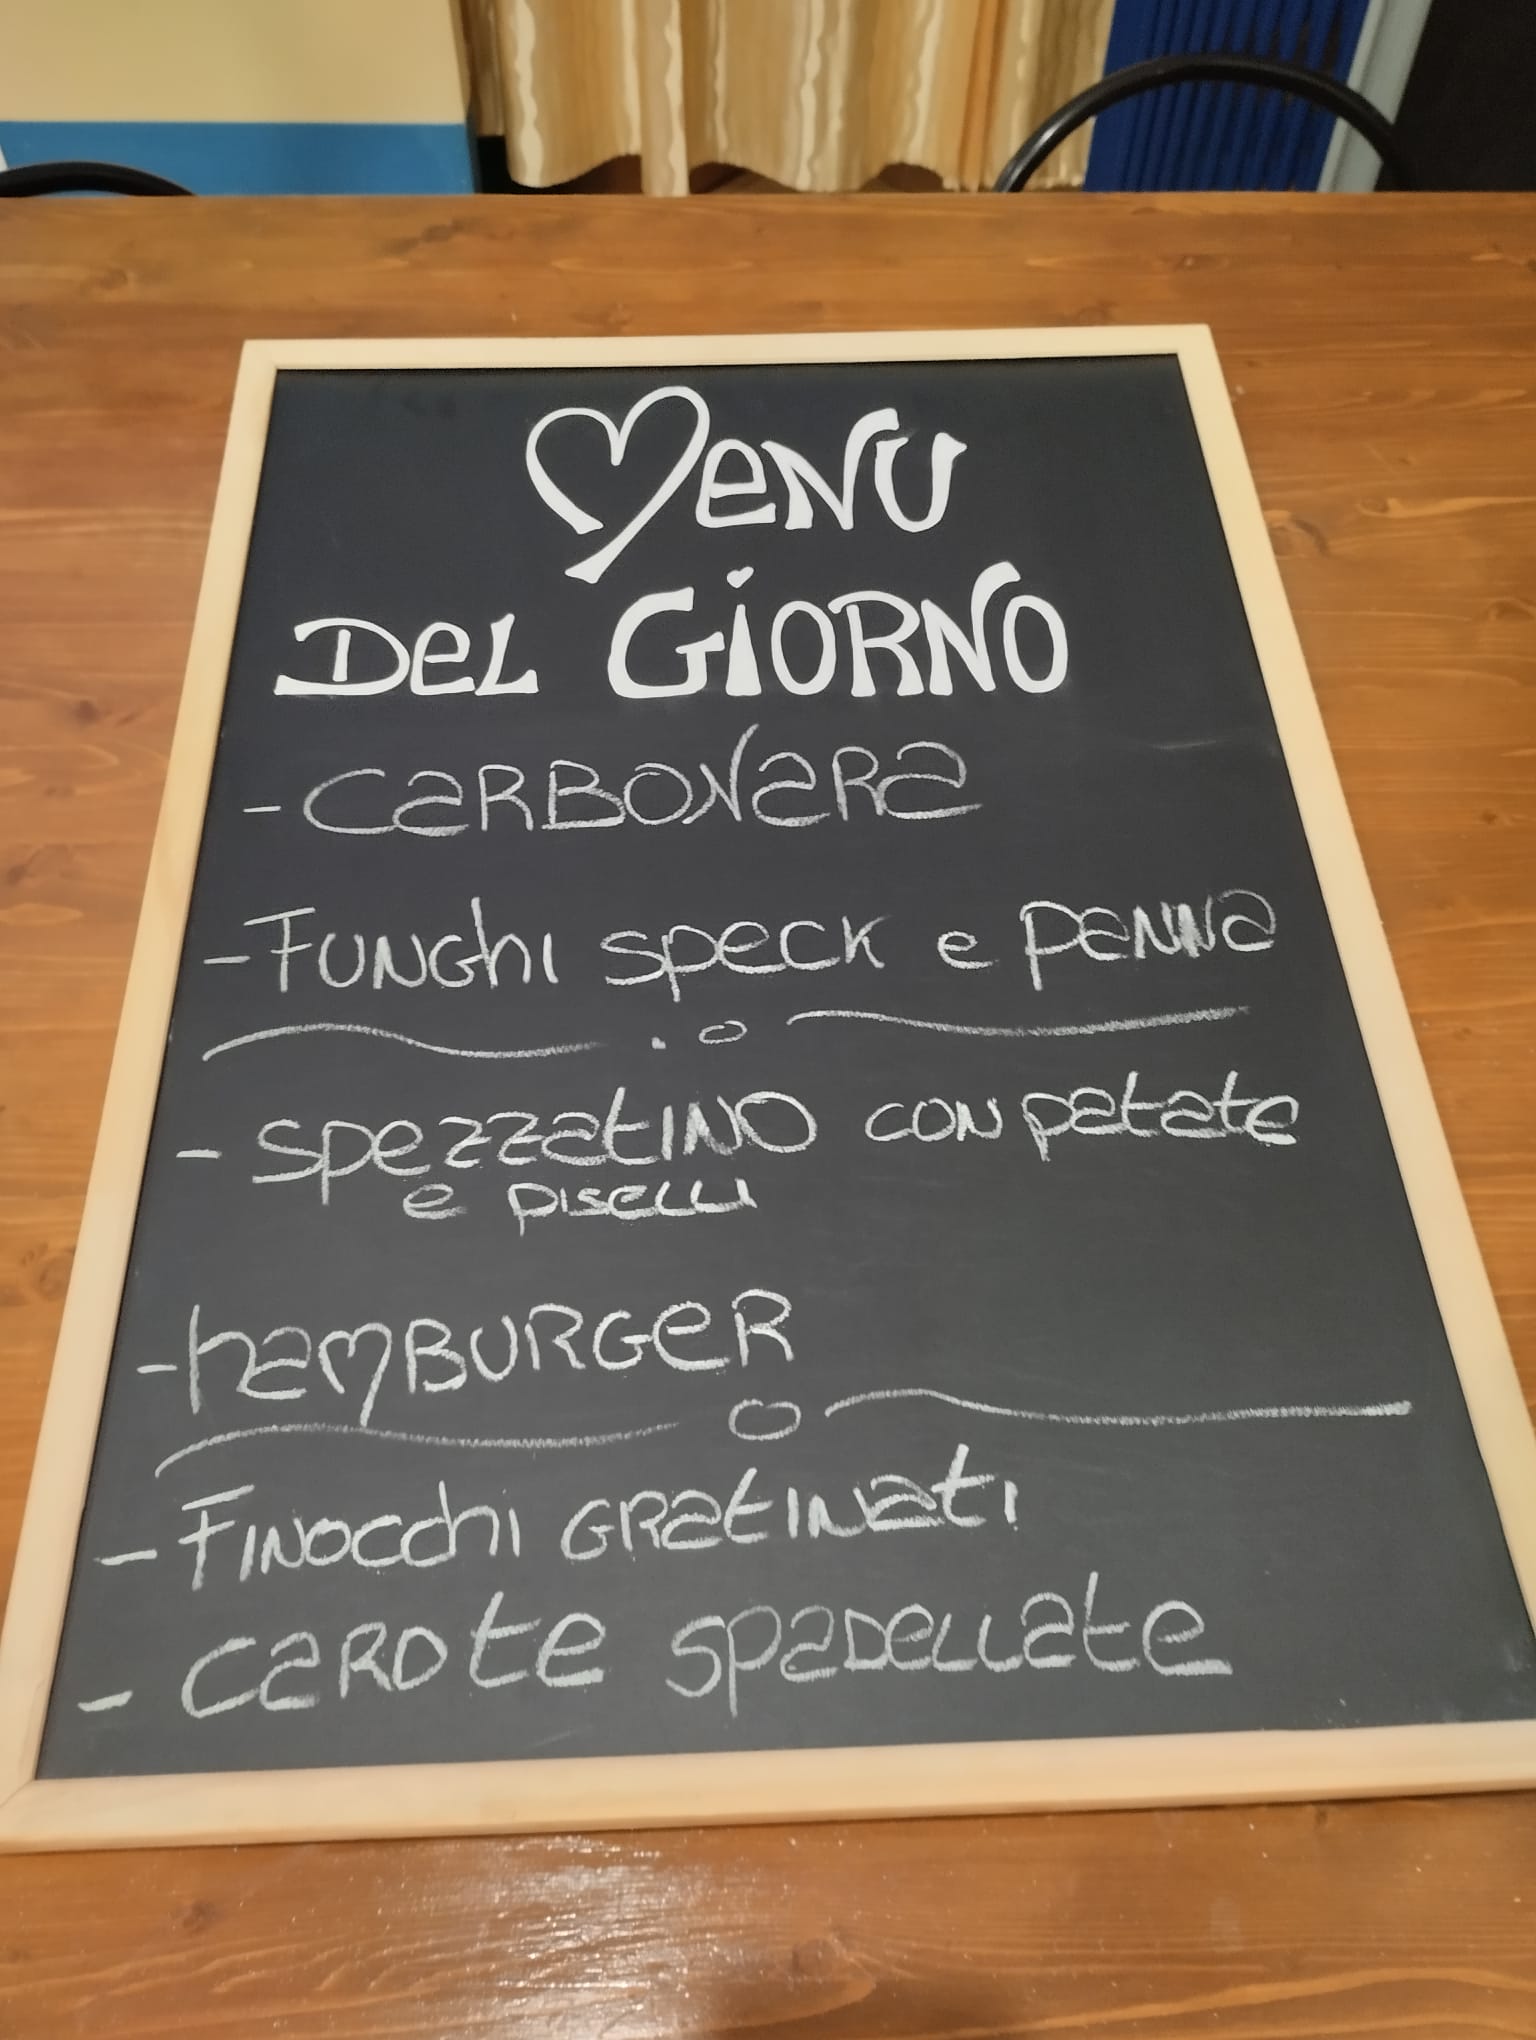 Menu
Del Giorno
- Carbonara
- Funghi speck e panna
- spezzatino con patate
e piselli
- hamburger
- Finocchi gratinati
- carote spadellate